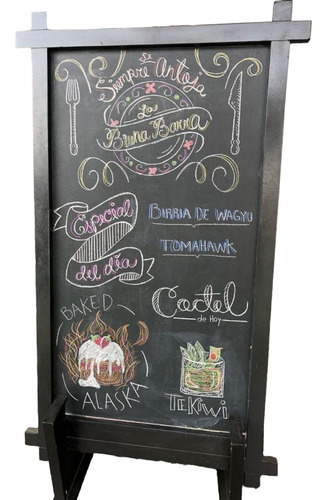 Siempre se Antoja
La
Buena Barra
Especial
del día
BIRRIA DE WAGYU
TOMAHAWK
Coctel
de Hoy
BAKED
ALASKA
TEKiwi